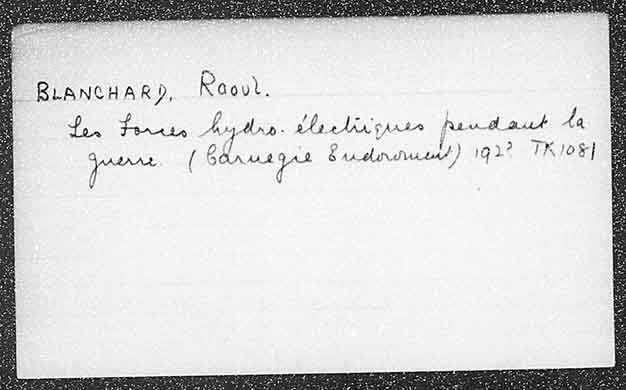 BLANCHARD, Raoul.
Les Forces hydro-électriques pendant la
guerre. (Carnegie Endowment) 192? TK1081